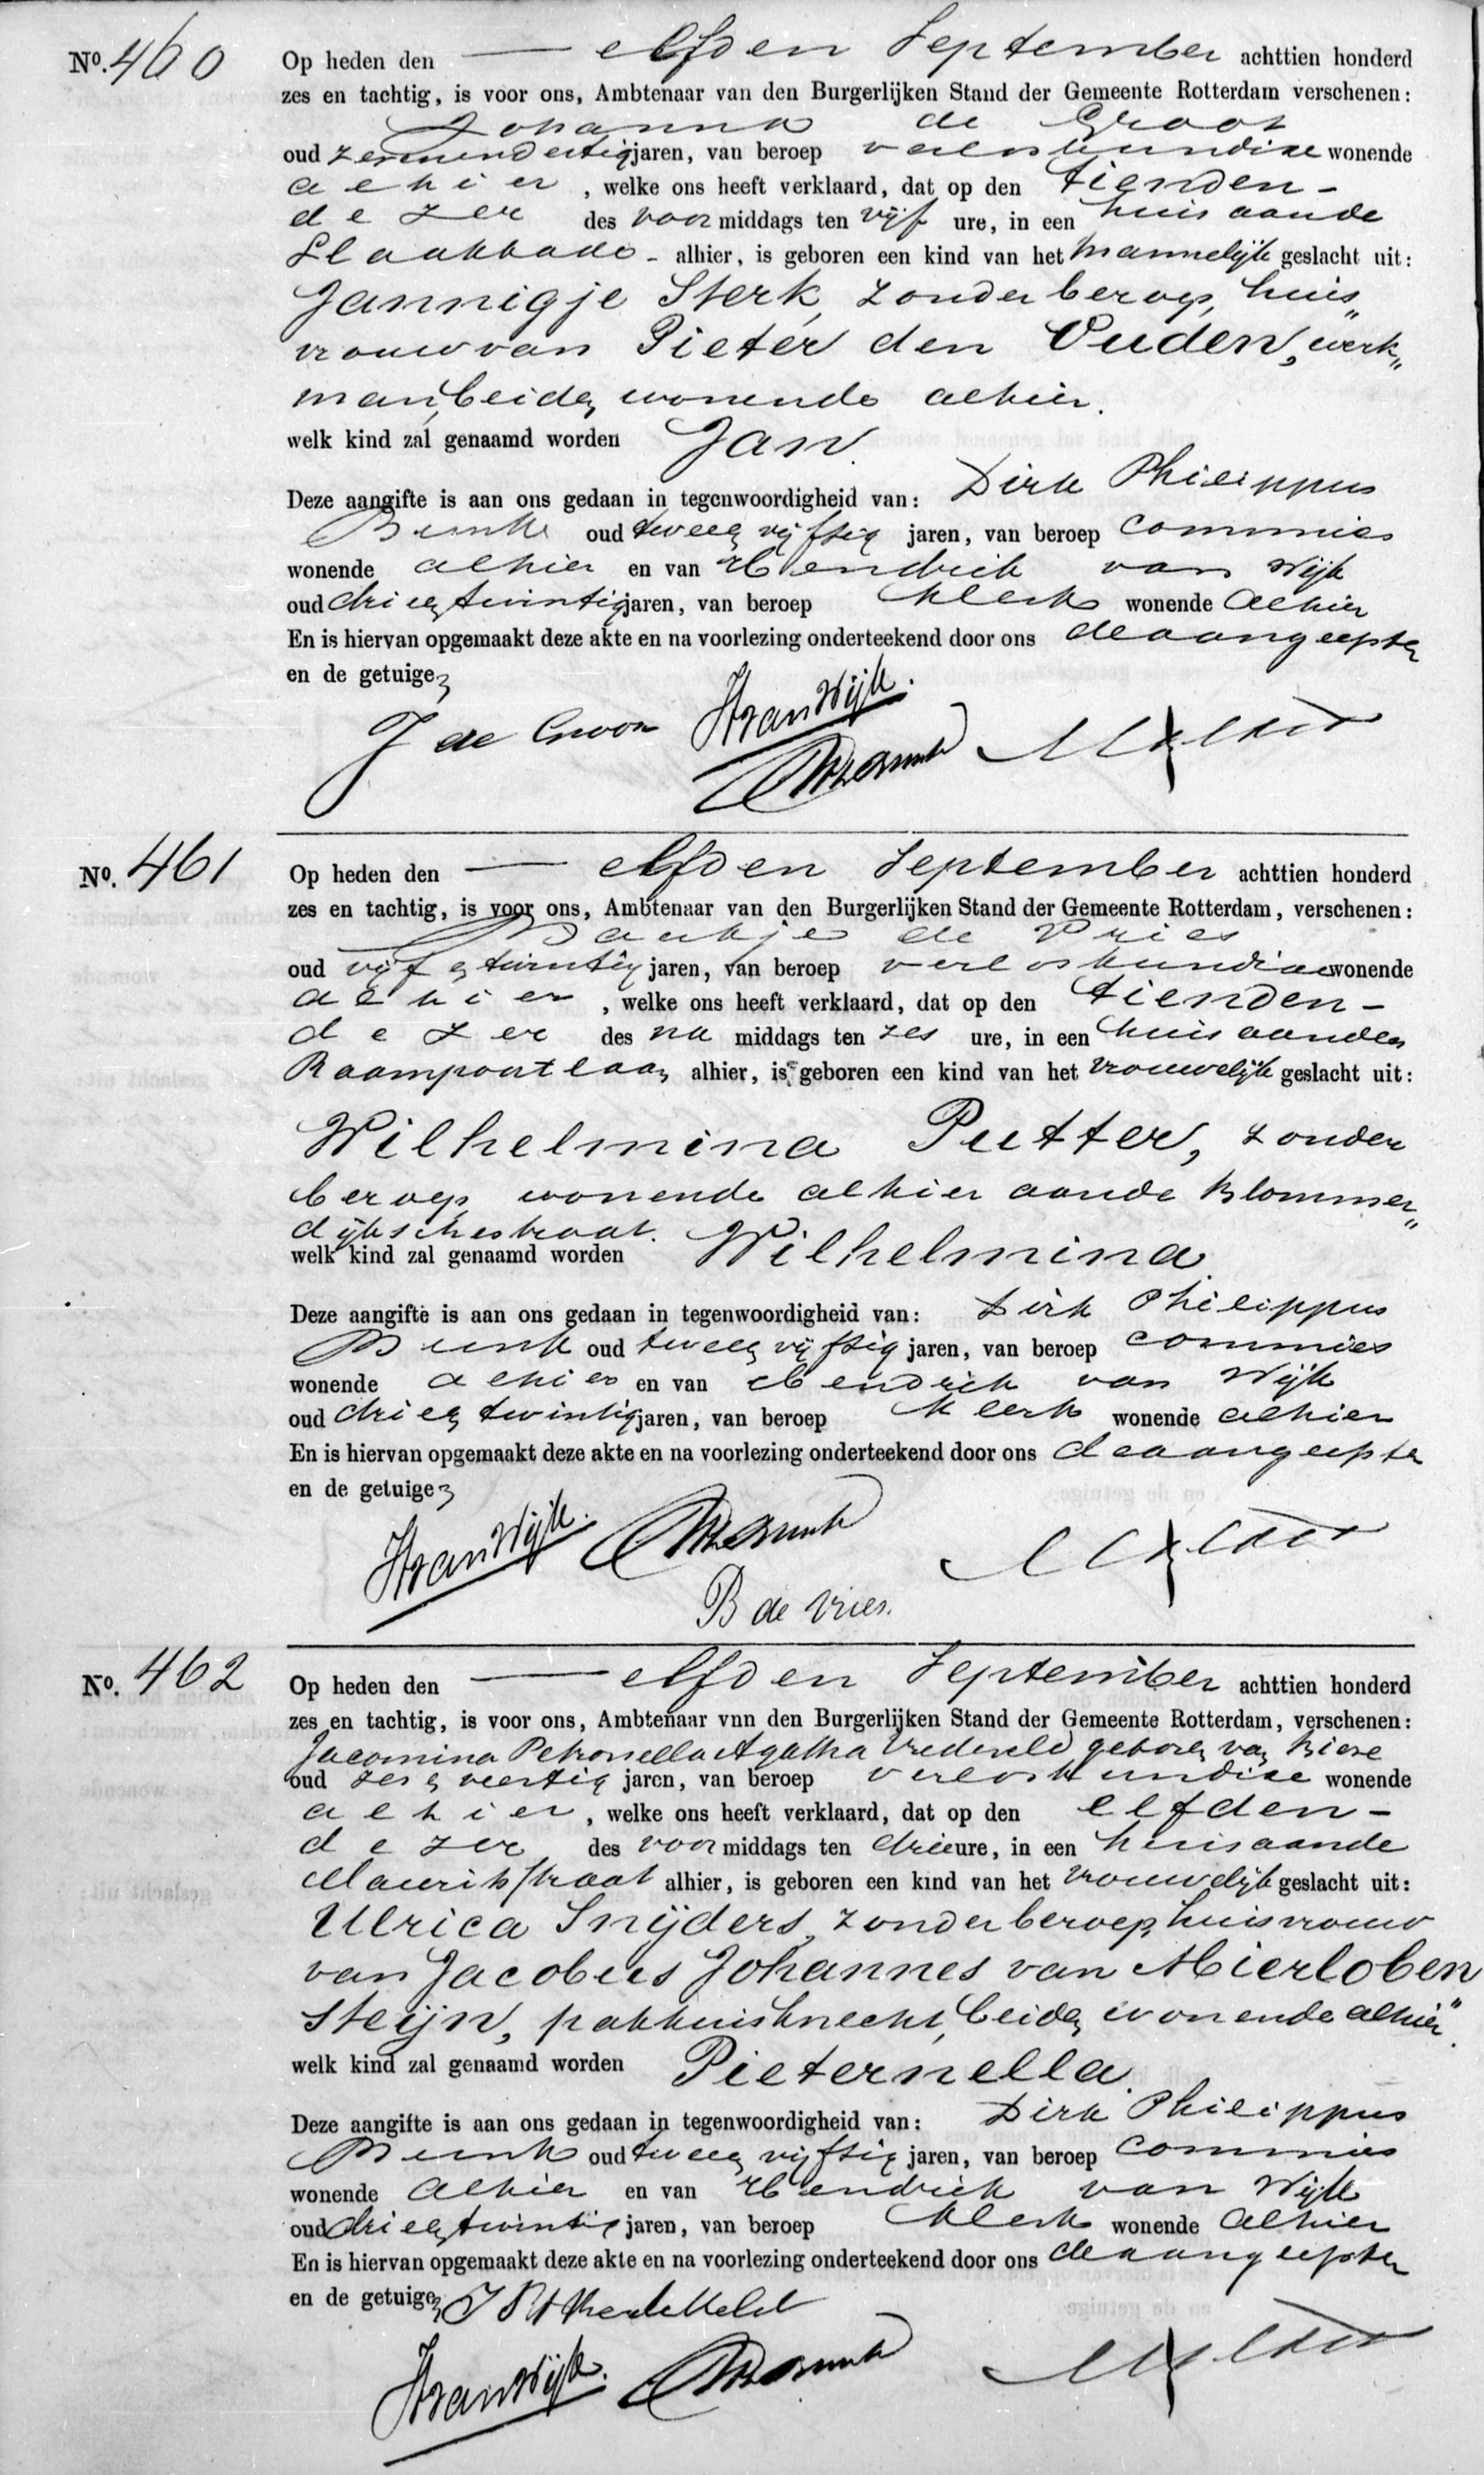 No. 460
Op heden den — elfden September achttien honderd
zes en tachtig, is voor ons, Ambtenaar van den Burgerlijken Stand der Gemeente Rotterdam verschenen:
Johanna de Groot
oud zevenendertig jaren, van beroep verloskundige wonende
alhier, welke ons heeft verklaard, dat op den tienden -
dezer des voor middags ten vijf ure, in een huis aan de
Slaakkade - alhier, is geboren een kind van het mannelijk geslacht uit:
Jannigje Sterk, zonder beroep, huis„
vrouw van Pieter den Ouden, werk„
man, beiden wonende alhier.
welk kind zal genaamd worden Jan.
Deze aangifte is aan ons gedaan in tegenwoordigheid van: Dirk Philippus
Bunk oud twee en vijftig jaren, van beroep commies
wonende alhier en van Hendrik van Wijk
oud drie en twintig jaren, van beroep klerk wonende alhier
En is hiervan opgemaakt deze akte en na voorlezing onderteekend door ons de aangeefster
en de getuigen
J de Groot HvanWijk.
No. 461
Op heden den — elfden September achttien honderd
zes en tachtig, is voor ons, Ambtenaar van den Burgerlijken Stand der Gemeente Rotterdam, verschenen:
Baukje de Vries
oud vijf en twintig jaren, van beroep verloskundige wonende
alhier, welke ons heeft verklaard, dat op den tienden -
dezer des na middags ten zes ure, in een huis aan den
Raampoortlaan alhier, is geboren een kind van het vrouwelijk geslacht uit:
Wilhelmina Putter, zonder
beroep wonende alhier aan de Blommer„
dijkschestraat.
welk kind zal genaamd worden Wilhelmina.
Deze aangifte is aan ons gedaan in tegenwoordigheid van: Dirk Philippus
Bunk oud twee en vijftig jaren, van beroep commies
wonende alhier en van Hendrik van Wijk
oud drie en twintig jaren, van beroep klerk wonende alhier
En is hiervan opgemaakt deze akte en na voorlezing onderteekend door ons de aangeefster
en de getuigen
HvanWijk.
B de Vries.
No. 462
Op heden den — elfden September achttien honderd
zes en tachtig, is voor ons, Ambtenaar vnn den Burgerlijken Stand der Gemeente Rotterdam, verschenen:
Jacomina Petronella Agatha Vredeveld geboren van
oud zes en veertig jaren, van beroep verloskundige wonende
alhier, welke ons heeft verklaard, dat op den elfden -
dezer des voor middags ten drie ure, in een huis aan de
Mauritsstraat alhier, is geboren een kind van het vrouwelijk geslacht uit:
Ulrica Snijders, zonder beroep, huisvrouw
van Jacobus Johannes van Mierloben
steijn, pakhuisknecht, beiden wonende alhier.
welk kind zal genaamd worden Pieternella.
Deze aangifte is aan ons gedaan in tegenwoordigheid van: Dirk Philippus
Bunk oud twee en vijftig jaren, van beroep commies
wonende alhier en van Hendrik van Wijk
oud drie en twintig jaren, van beroep klerk wonende alhier
En is hiervan opgemaakt deze akte en na voorlezing onderteekend door ons de aangeefster
en de getuigen
HvanWijk.